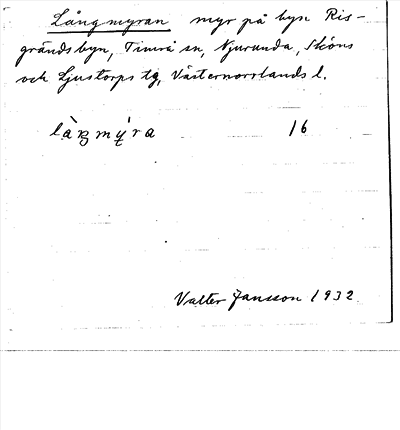 Långmyran myr på byn Ris-
grändsbyn, Timrå sn, Njurunda, Sköns
och Ljustorps tg, Västernorrlands l.
16
Valter Jansson 1932